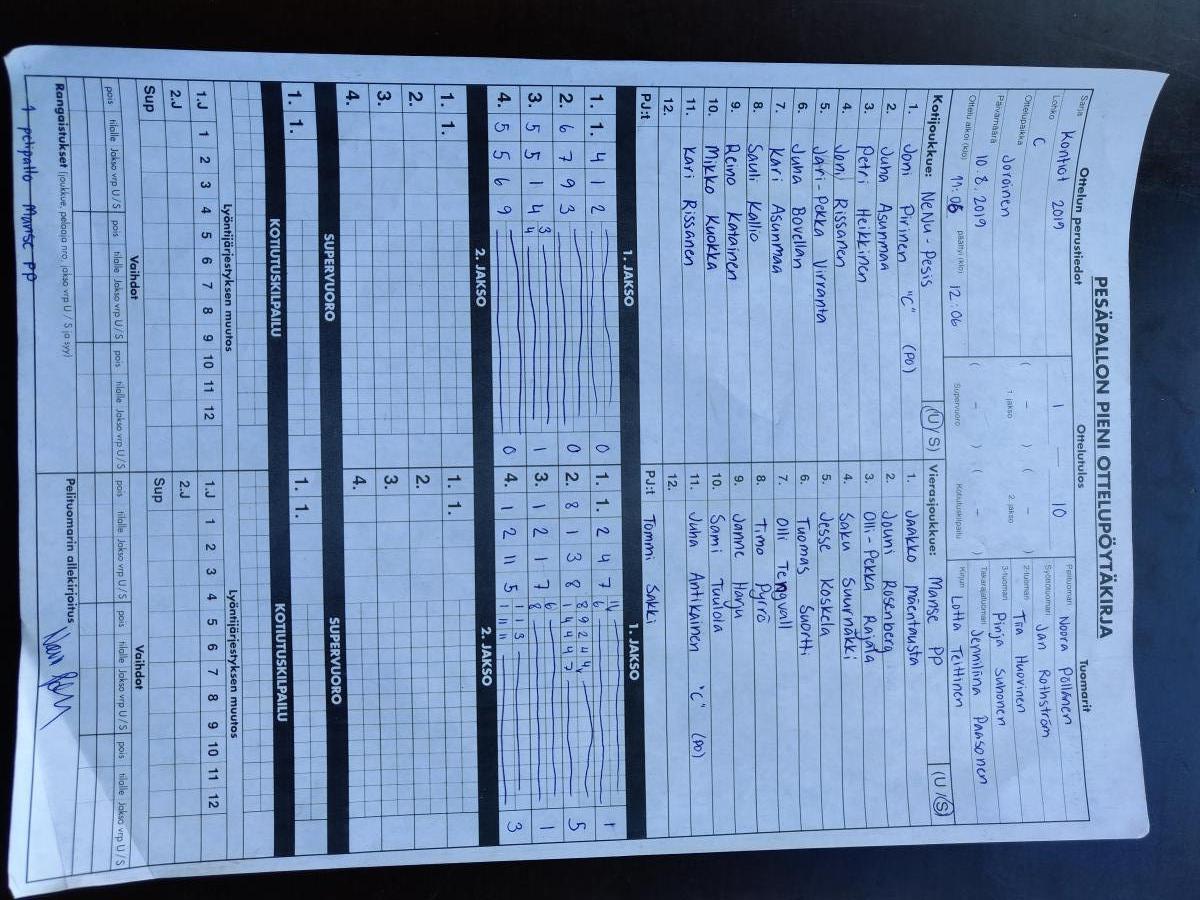 PESÄPALLON PIENI OTTELUPÖYTÄKIRJA
Ottelun perustiedot
Sarja Kontiot 2019
Lohko C
Ottelupaikka Joroinen
Päivämäärä 10.8.2019
Ottelu alkoi (klo) 11:06 päättyi (klo) 12:06
Ottelutulos
1 — 10
( – ) ( – )
1. jakso 2. jakso
( – ) ( – )
Supervuoro Kotiutuskilpailu
Tuomarit
Pelituomari Noora Pöllänen
Syöttötuomari Jan Rothström
2-tuomari Tiia Huovinen
3-tuomari Pinja Suhonen
Takarajatuomari Jemmiina Paasonen
Kirjuri Lotta Teittinen
Kotijoukkue: NeNu-Pesis (U/S)
1. Joni Pirinen "C" (PO)
2. Juha Asunmaa
3. Petri Heikkinen
4. Joni Rissanen
5. Jari-Pekka Viranta
6. Juha Bovellan
7. Kari Asunmaa
8. Sauli Kallio
9. Reino Katainen
10. Mikko Kuokka
11. Kari Rissanen
12.
PJ:t
Vierasjoukkue: Manse PP (U/S)
1. Jaakko Mäentausta
2. Jouni Rosenberg
3. Olli-Pekka Rajala
4. Saku Suurnäkki
5. Jesse Koskela
6. Tuomas Suortti
7. Olli Tengvall
8. Timo Pyrrö
9. Janne Harju
10. Sami Tuulola
11. Juha Antikainen "C" (PO)
12.
PJ:t Tommi Sakki
1. JAKSO
1. 1. 4 1 2 0
2. 6 7 9 3 0
3. 5 5 1 4 3 4 1
4. 5 5 6 9 0
1. JAKSO
1. 1. 2 4 7 6 11 1
2. 8 1 3 8 1 4 4 4 7 8 9 2 4 5
3. 1 2 1 7 8 6 1
4. 1 2 11 5 1 1 1 1 1 3 3
2. JAKSO
1. 1.
2.
3.
4.
2. JAKSO
1. 1.
2.
3.
4.
SUPERVUORO
1. 1.
SUPERVUORO
1. 1.
KOTIUTUSKILPAILU
KOTIUTUSKILPAILU
Lyöntijärjestyksen muutos
1.J 1 2 3 4 5 6 7 8 9 10 11 12
2.J
Sup
Lyöntijärjestyksen muutos
1.J 1 2 3 4 5 6 7 8 9 10 11 12
2.J
Sup
Vaihdot
pois tilalle Jakso vrp U/S pois tilalle Jakso vrp U/S pois tilalle Jakso vrp U/S
Vaihdot
pois tilalle Jakso vrp U/S pois tilalle Jakso vrp U/S pois tilalle Jakso vrp U/S
Rangaistukset (joukkue, pelaaja nro, jakso vrp U / S ja syy)
1 pelipallo Manse PP
Pelituomarin allekirjoitus